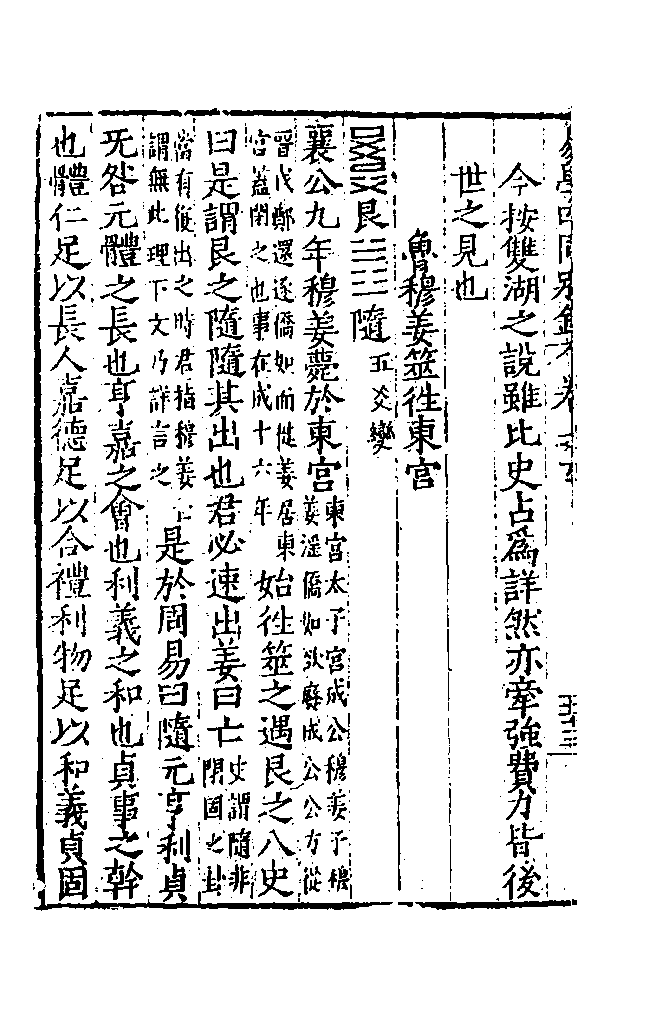 今按雙湖之說雖比史占爲詳然亦牽強費力皆後
世之見也
魯穆姜筮徃東宫
艮 隨 五爻變
襄公九年穆姜薨於東宫 東宫太子宫成公穆姜子穆
姜滛僑如欲廢成公公方從
晉伐鄭還逐僑如而徙姜居東
宫葢閉之也事在成十六年 始徃筮之遇艮之八史
曰是謂艮之隨隨其出也君必速出姜曰亡 史謂隨非
閉固之卦
當有從出之時君指穆姜
謂無此理下文乃詳言之 是於周易曰隨元亨利貞
无咎元體之長也亨嘉之會也利義之和也貞事之幹
也體仁足以長人嘉德足以合禮利物足以和義貞固